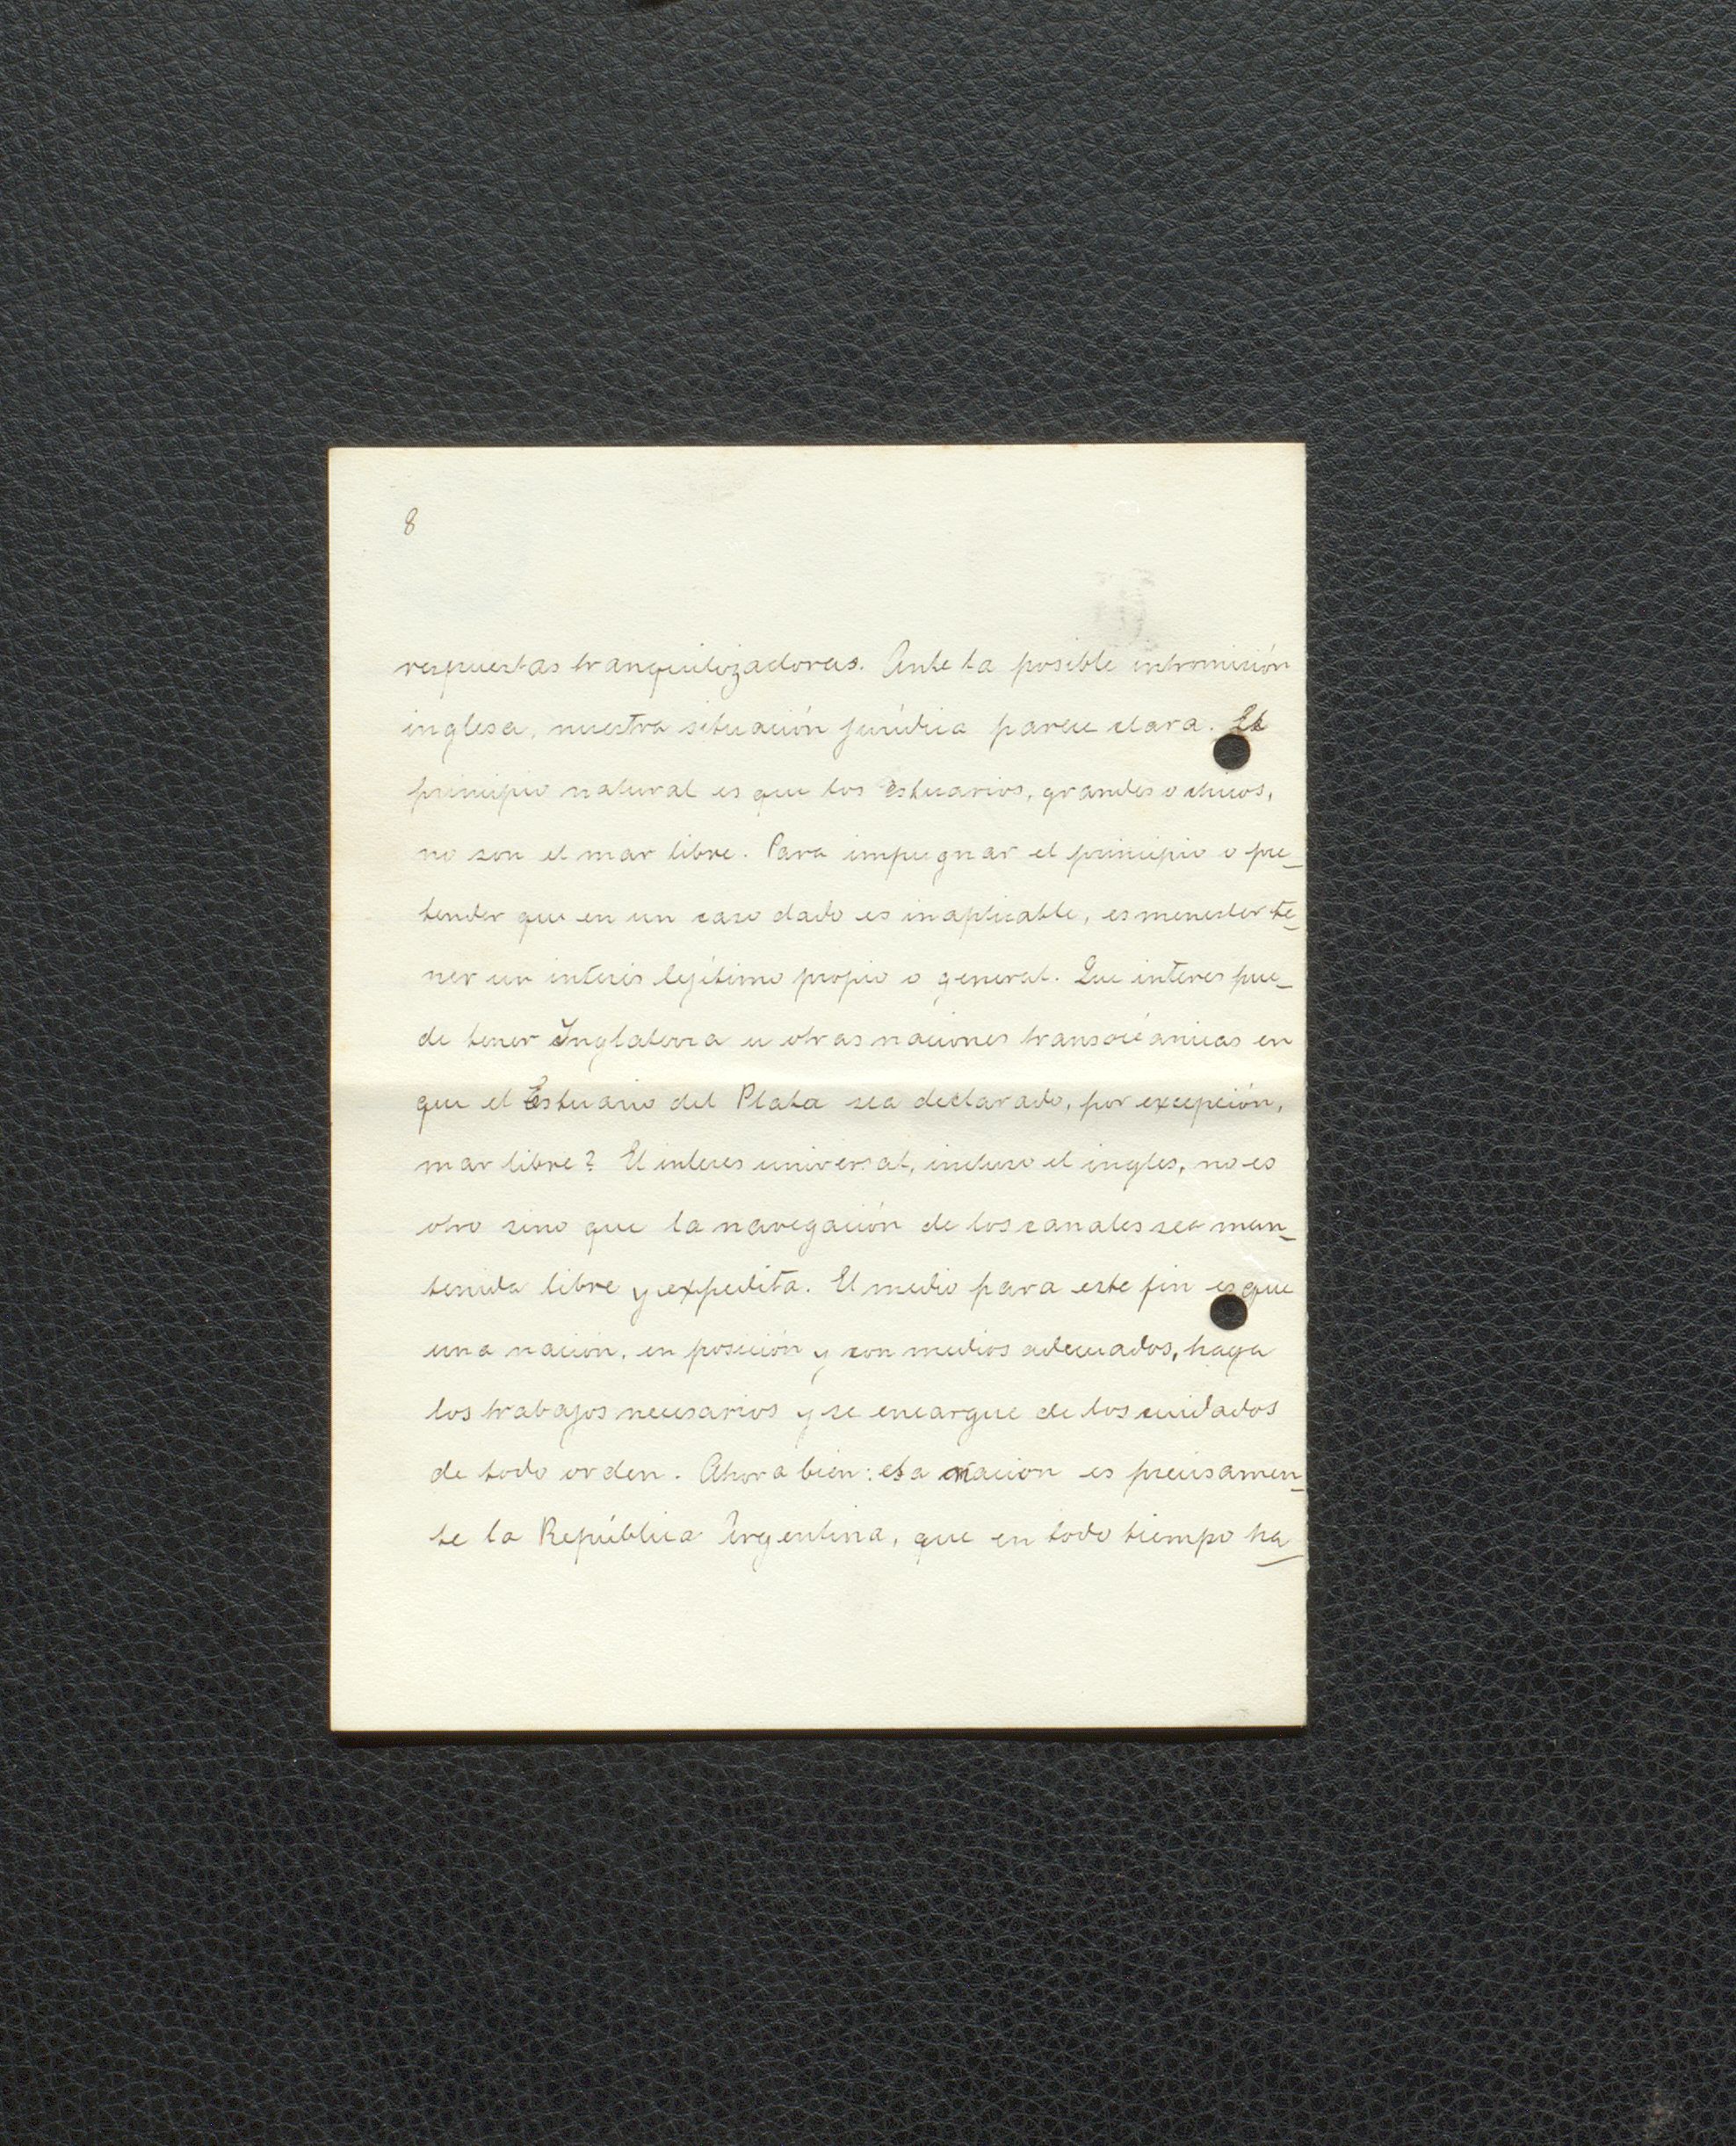 8
respuestas tranquilizadoras. Ante la posible intromisión
inglesa, nuestra situación jurídica parece clara. El
principio natural es que los Estuarios, grandes o chicos,
no son el mar libre. Para impugnar el principio o pre_
tender que en un caso dado es inaplicable, es menester te_
ner un interés lejítimo propio o general. Que interes pue_
de tener Inglaterra u otras naciones transoceánicas en
que el Estuario del Plata sea declarado, por excepción,
mar libre? El interes universal, incluso el ingles, no es
otro sino que la navegación de los canales sea man_
tenida libre y expedita. El medio para este fin es que
una nación, en posición y con medios adecuados, haga
los trabajos necesarios y se encargue de los cuidados
de todo orden. Ahora bien: esa nacion es precisamen_
te la República Argentina, que en todo tiempo ha_